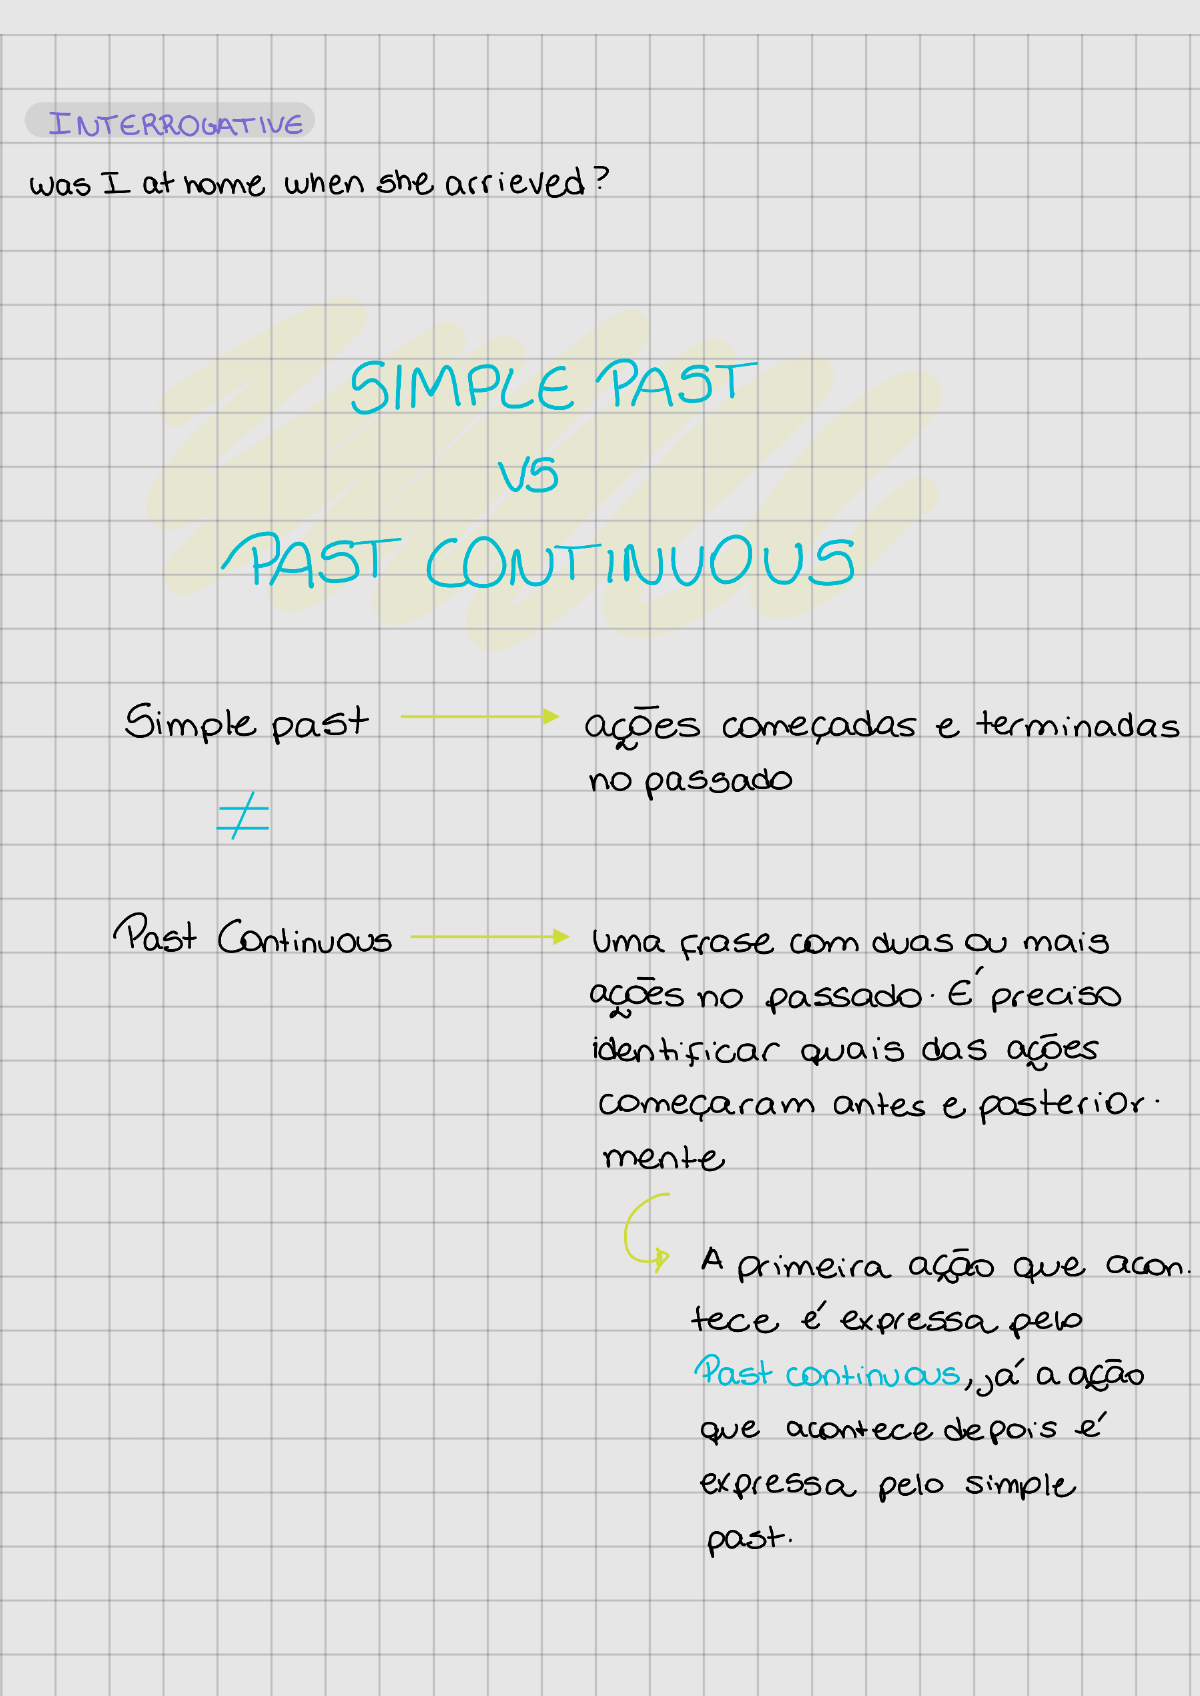 INTERROGATIVE
was I at home when she arrieved?
SIMPLE PAST
VS
PAST CONTINUOUS
Simple past → ações começadas e terminadas
no passado
≠
Past Continuous → uma frase com duas ou mais
ações no passado. É preciso
identificar quais das ações
começaram antes e posterior.
mente
A primeira ação que acon.
tece é expressa pelo
Past continuous, já a ação
que acontece depois é
expressa pelo simple
past.